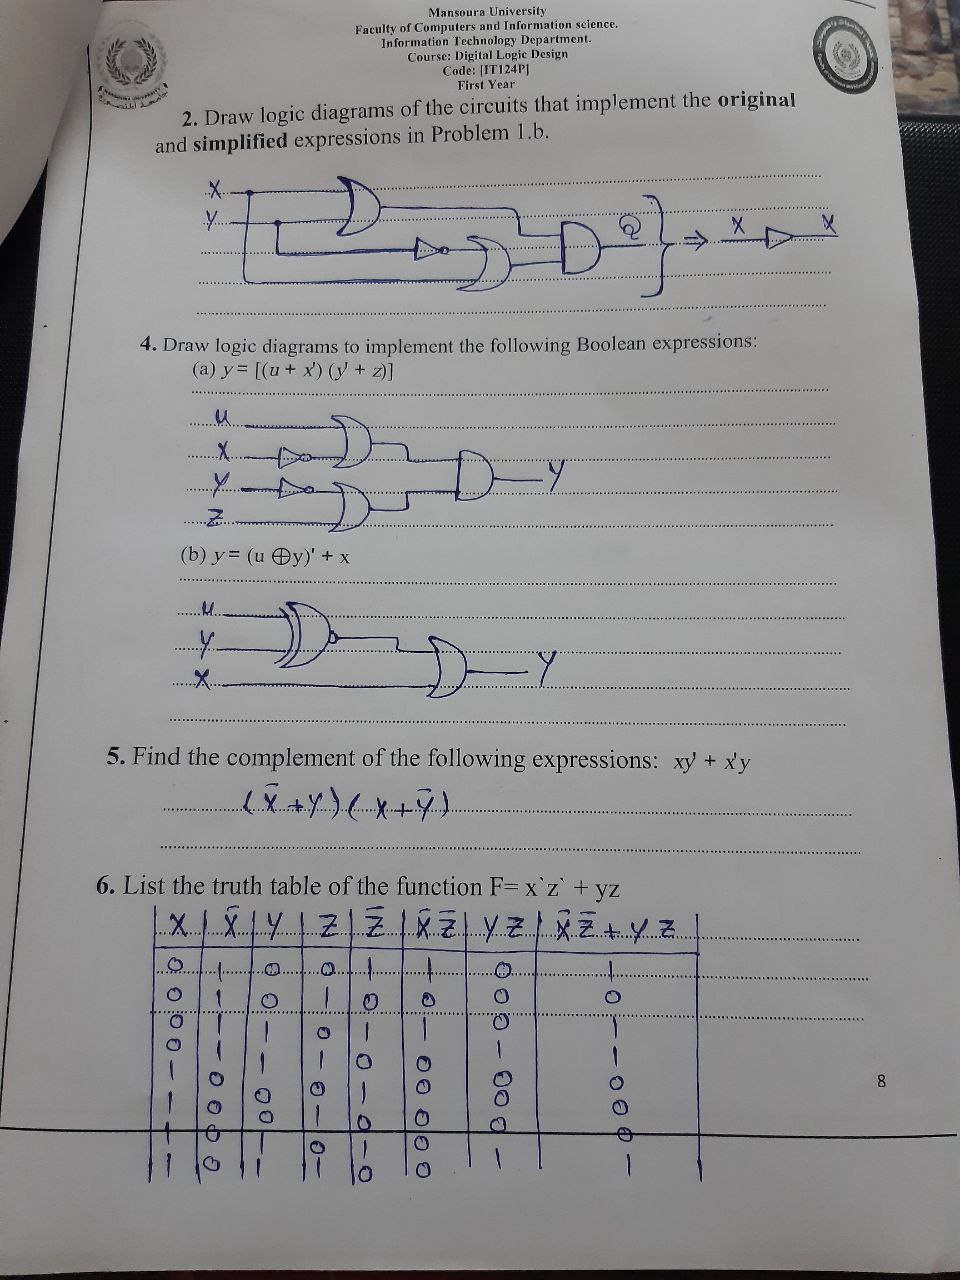 Mansoura University
Faculty of Computers and Information science.
Information Technology Department.
Course: Digital Logic Design
Code: [IT124P]
First Year
2. Draw logic diagrams of the circuits that implement the original
and simplified expressions in Problem 1.b.
X
Y
Q
⇒
X
X
4. Draw logic diagrams to implement the following Boolean expressions:
(a) y = [(u + x') (y' + z)]
u
X
Y
Z
Y
(b) y = (u ⊕y)' + x
u
Y
X
Y
5. Find the complement of the following expressions: xy' + x'y
(X̄ + Y) ( X + Ȳ)
6. List the truth table of the function F= x`z` + yz
X X̄ Y Z Z̄ X̄ Z̄ Y Z X̄ Z̄ + Y Z
0 1 0 0 1 1 0 1
0 1 0 1 0 0 0 0
0 1 1 0 1 1 0 1
0 1 1 1 0 0 1 1
1 0 0 0 1 0 0 0
1 0 0 1 0 0 0 0
1 0 1 0 1 0 0 0
1 0 1 1 0 0 1 1
8